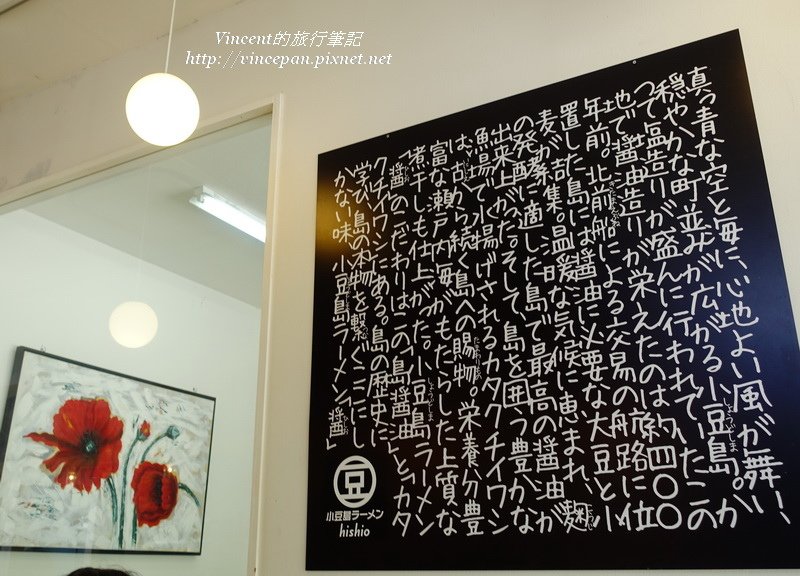 Vincent的旅行筆記
http://vincepan.pixnet.net
真っ青な空と海に、心地よい風が舞い、
穏やかな町並みが広がる小豆島。か
つて塩造りが盛んに行われていたこの
地で、醤油造りが栄えたのは約四〇〇
年前。北前船による交易の航路に位
置した島には醤油に必要な大豆と小
麦が 。温暖な気候に恵まれ、麹
の発酵に適した島で最高の醤油が
出来上がった。そして、島を囲う豊かな
漁場で水揚げされるカタクチイワシ
は、古くから続く島への賜物。栄養分豊
富な瀬戸内海がもたらした上質な
煮干しも仕上がった。小豆島ラーメン
「醤」のこだわりはこの「島醤油」と「カタ
クチイワシ」にある。島の歴史に
学び、島の本物を繋ぐことにし
かない味、小豆島ラーメン「醤」
豆
小豆島ラーメン
hishio